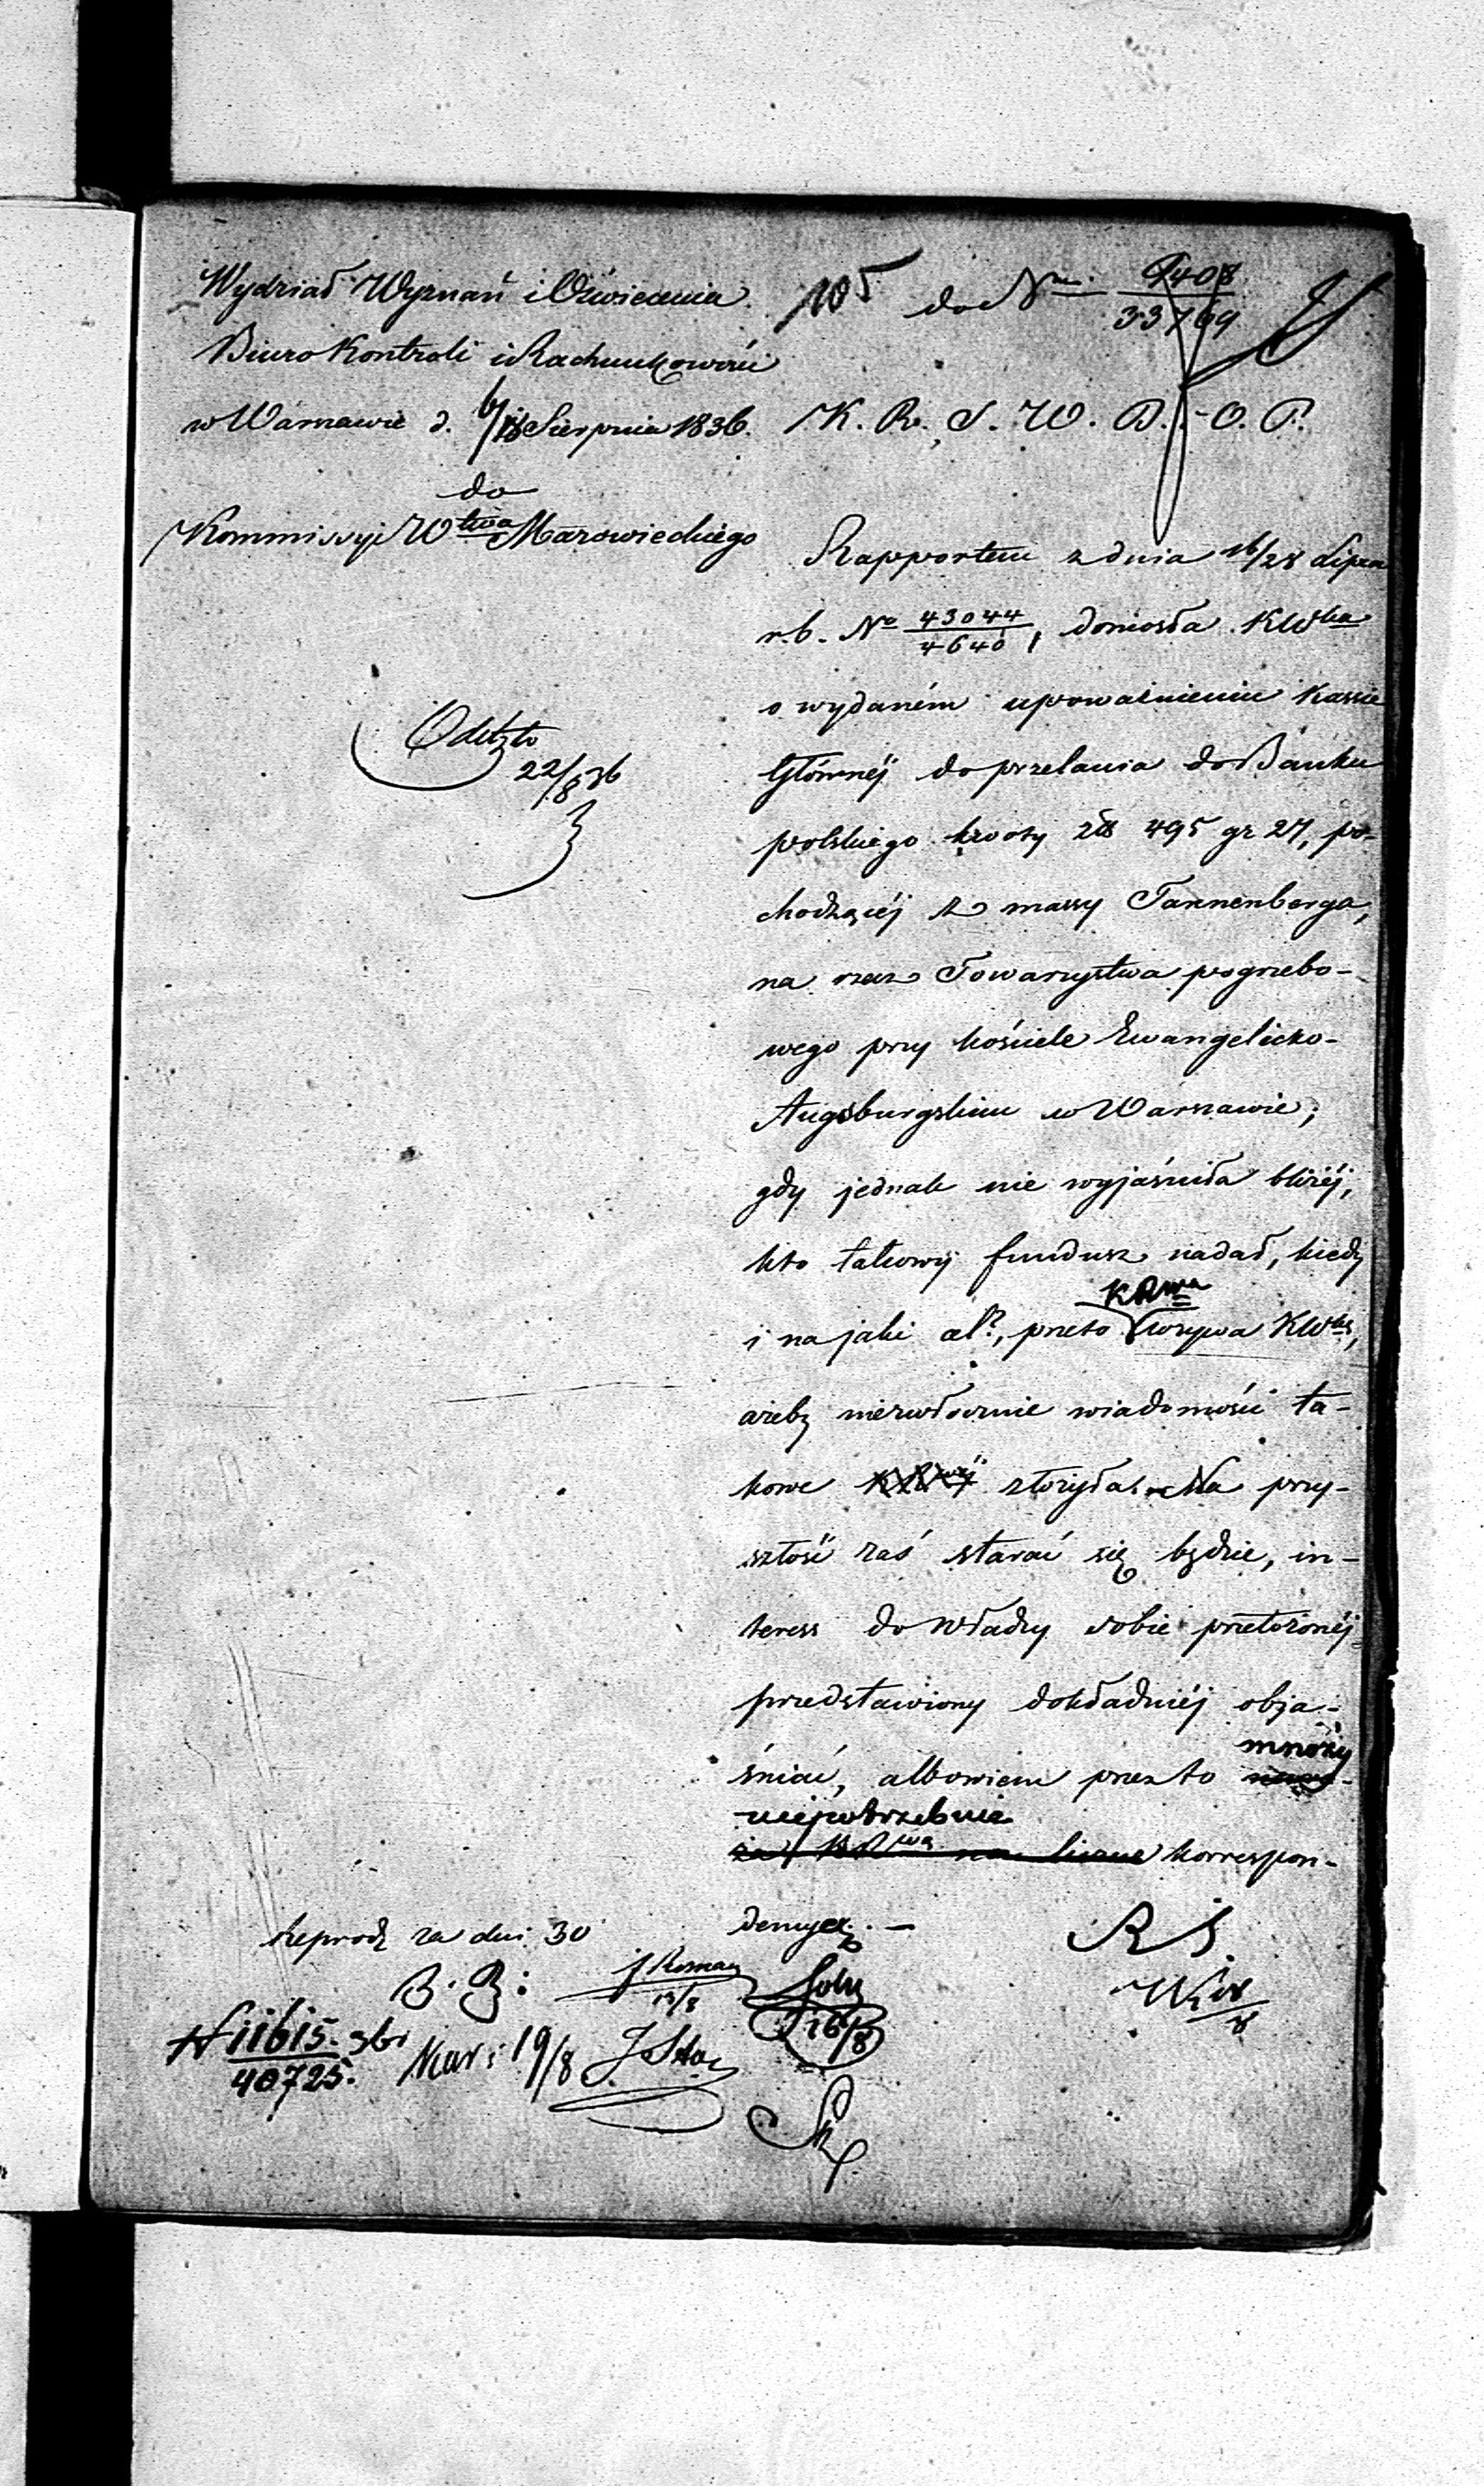 Wydział Wyznań i Oświecenia
Biuro Kontroli i Rachunkowości
w Warszawie d. 6/18 Sierpnia 1836.
do
Kommissyi W twa Mazowieckiego
105
do Nru 9408/33709
K. R. S. W. D. i O. P.
Odeszło
22/8 36
Rapportem z dnia 16/28 Lipca
r.b. No 43044/4640, doniosła KWka
o wydaném upoważnieniu Kassie
Głównéj do przelania do Banku
polskiego kwoty zł 495 gr 27, po-
chodzącéj z massy Tannenberga,
na rzecz Towarzystwa pogrzebo-
wego przy kościele Ewangelicko-
Augsburgskim w Warszawie;
gdy jednak nie wyjaśniła bliżéj,
kto takowy fundusz nadał, kiedy
KRwa
i na jaki cel?, przeto wzywa KWką,
ażeby niezwłocznie wiadomości ta-
kowe złożyła. Na przy-
szłość zaś starać się będzie, in-
teress do władzy sobie przełożonéj
przedstawiony dokładniéj obja-
mnoży
śniać, albowiem przez to
niepotrzebnie
korrespon-
dencyę. —
Reprod za dni 30
R S.
B. B:
N 11615
40725.
19/8
16/8